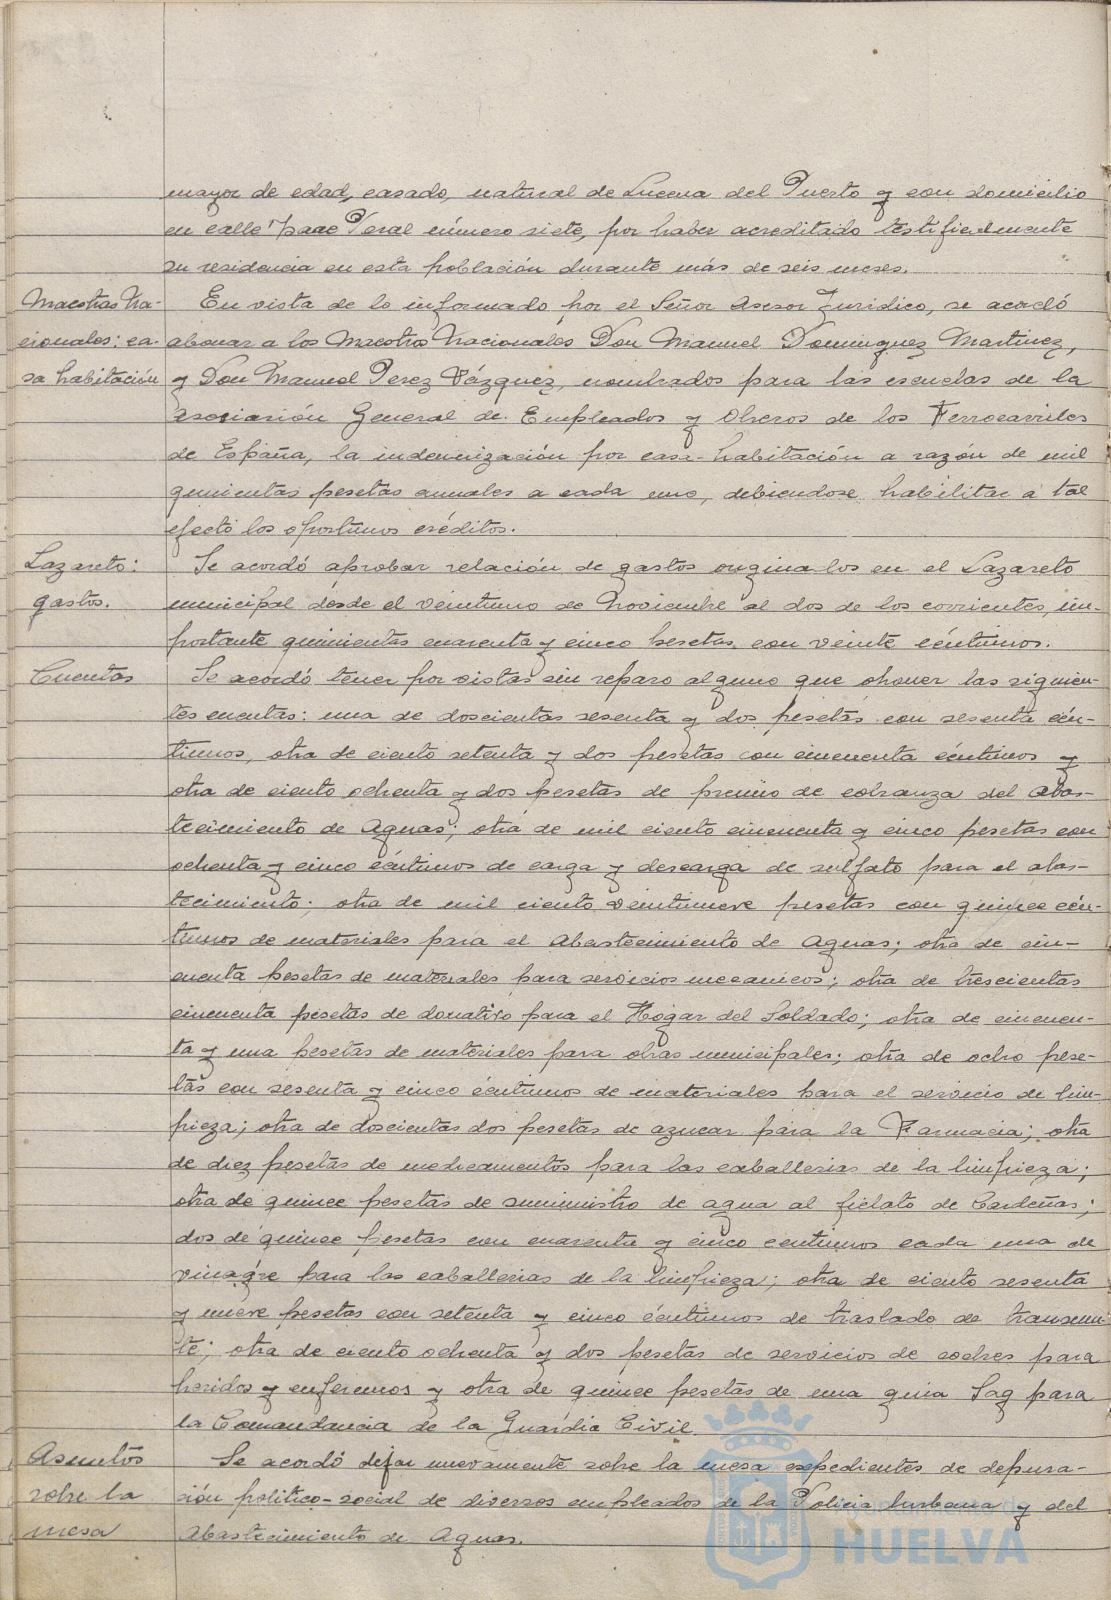 mayor de edad, casado, natural de Lucena del Puerto y con domicilio
en calle Isaac Peral número siete, por haber acreditado testificalmente
su residencia en esta población durante más de seis meses.
Maestros Na-
cionales: ca-
sa habitación
En vista de lo informado por el Señor Asesor Jurídico, se acordó
abonar a los Maestros Nacionales Don Manuel Dominguez Martinez,
y Don Manuel Perez Vázquez, nombrados para las escuelas de la
Asociación General de Empleados y Obreros de los Ferrocarriles
de España, la indemnización por casa-habitación a razón de mil
quinientas pesetas anuales a cada uno, debiendose habilitar a tal
efecto los oportunos créditos.
Lazareto:
gastos.
Se acordó aprobar relación de gastos originados en el Lazareto
municipal desde el veintiuno de Noviembre al dos de los corrientes, im-
portante quinientas cuarenta y cinco pesetas con veinte céntimos.
Cuentas
Se acordó tener por vistas sin reparo alguno que oponer las siguien-
tes cuentas: una de doscientas sesenta y dos pesetas con sesenta cén-
timos, otra de ciento setenta y dos pesetas con cincuenta céntimos y
otra de ciento ochenta y dos pesetas de premio de cobranza del Abas-
tecimiento de Aguas; otra de mil ciento cincuenta y cinco pesetas con
ochenta y cinco céntimos de carga y descarga de sulfato para el abas-
tecimiento; otra de mil ciento veintinueve pesetas con quince cén-
timos de materiales para el Abastecimiento de Aguas; otra de cin-
cuenta pesetas de materiales para servicios mecanicos; otra de trescientas
cincuenta pesetas de donativo para el Hogar del Soldado; otra de cincuen-
ta y una pesetas de materiales para obras municipales; otra de ocho pese-
tas con sesenta y cinco céntimos de materiales para el servicio de lim-
pieza; otra de doscientas dos pesetas de azucar para la Farmacia; otra
de diez pesetas de medicamentos para las caballerias de la limpieza;
otra de quince pesetas de suministro de agua al fielato de Cardeñas;
dos de quince pesetas con cuarenta y cinco centimos cada una de
vinagre para las caballerias de la limpieza; otra de ciento sesenta
y nueve pesetas con setenta y cinco céntimos de traslado de transeun-
te; otra de ciento ochenta y dos pesetas de servicios de coches para
heridos y enfermos y otra de quince pesetas de una guia Sag para
la Comandancia de la Guardia Civil.
Asuntos
sobre la
mesa
Se acordó dejar nuevamente sobre la mesa expedientes de depura-
ción politico-social de diversos empleados de la Policia Urbana y del
Abastecimiento de Aguas.
Ayuntamiento de
HUELVA